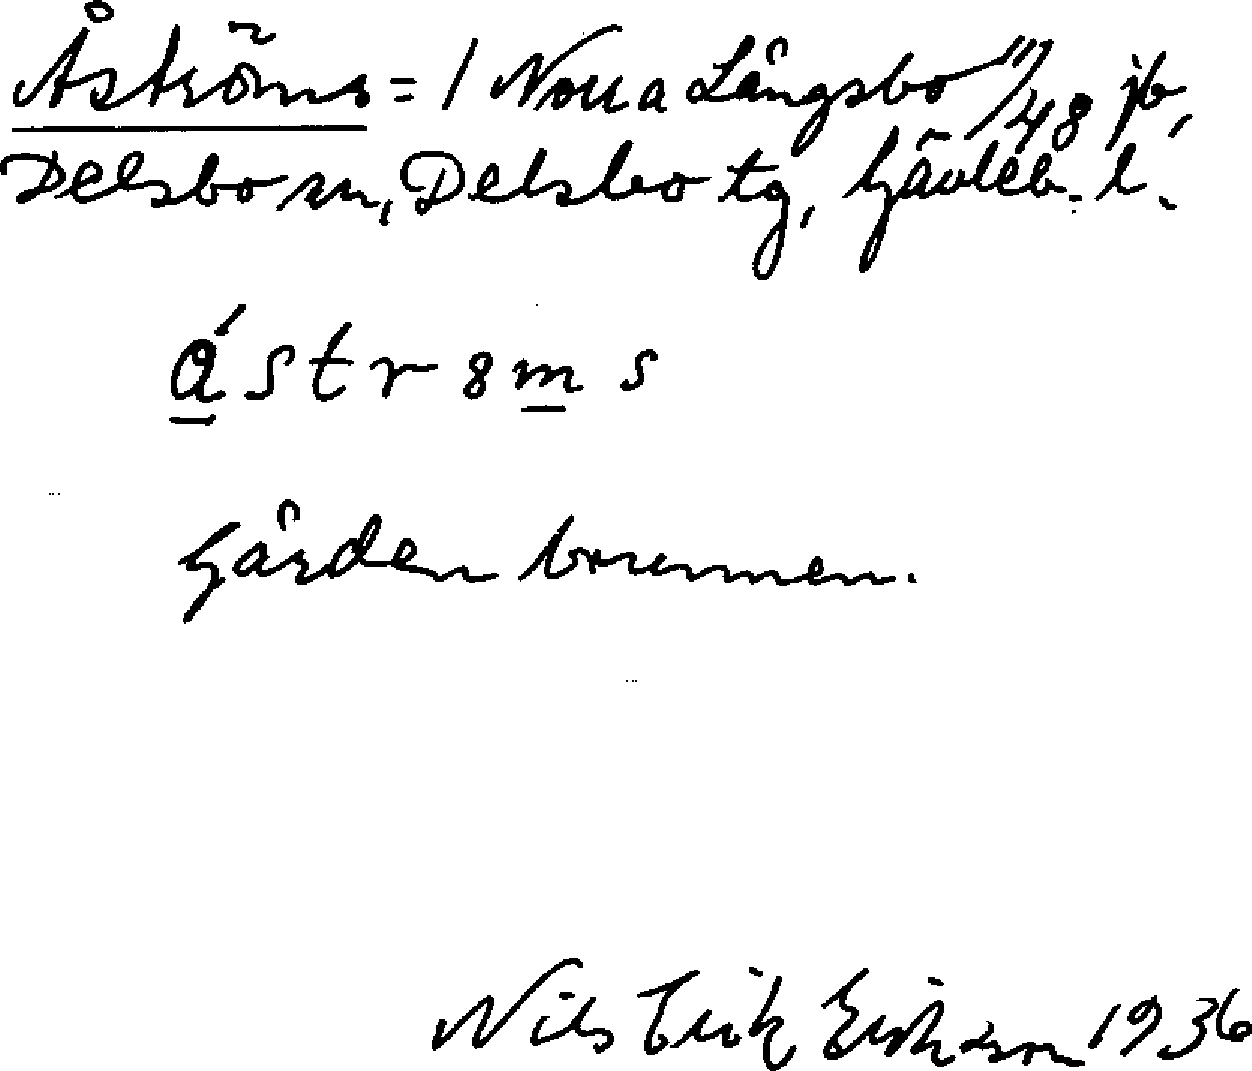 Åströms = 1 Norra Långsbo 11/48 jb,
Delsbo sn, Delsbo tg, Gävleb. l.
ǻ s t r 8 m s
Gården brunnen.
Nils Erik Eriksson 1936